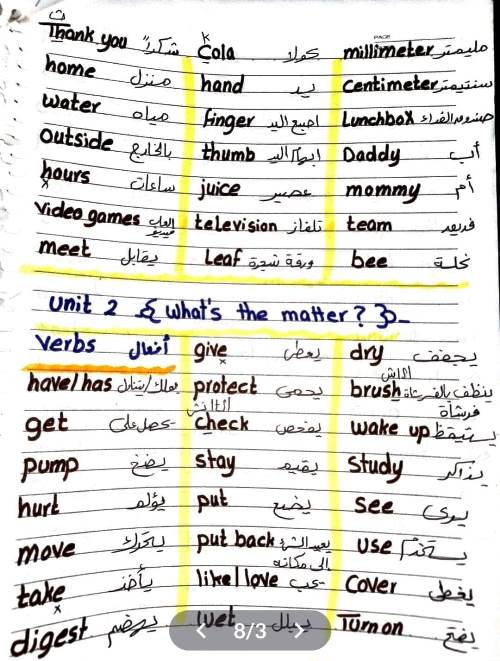 Thank you شكراً Cola كولا millimeter مليمتر
home منزل hand يد Centimeter سنتيمتر
water مياه finger اصبع اليد Lunchbox صندوق الغداء
outside بالخارج thumb ابهام اليد Daddy أب
hours ساعات juice عصير mommy أم
Video games العاب فيديو television تلفاز team فريق
meet يقابل Leaf ورقة شجرة bee نحلة
unit 2 { what's the matter? }
Verbs أفعال give يعطى dry يجفف
have/has يملك/يتناول protect يحمى brush ينظف بالفرشاة فرشاة
get يحصل على check يفحص wake up يستيقظ
pump يضخ stay يقيم Study يذاكر
hurt يؤلم put يضع see يرى
move يتحرك put back يعيد الشئ الى مكانه use يستخدم
take يأخذ like/love يحب Cover يغطى
digest يهضم wet يبلل Turn on يفتح
8/3